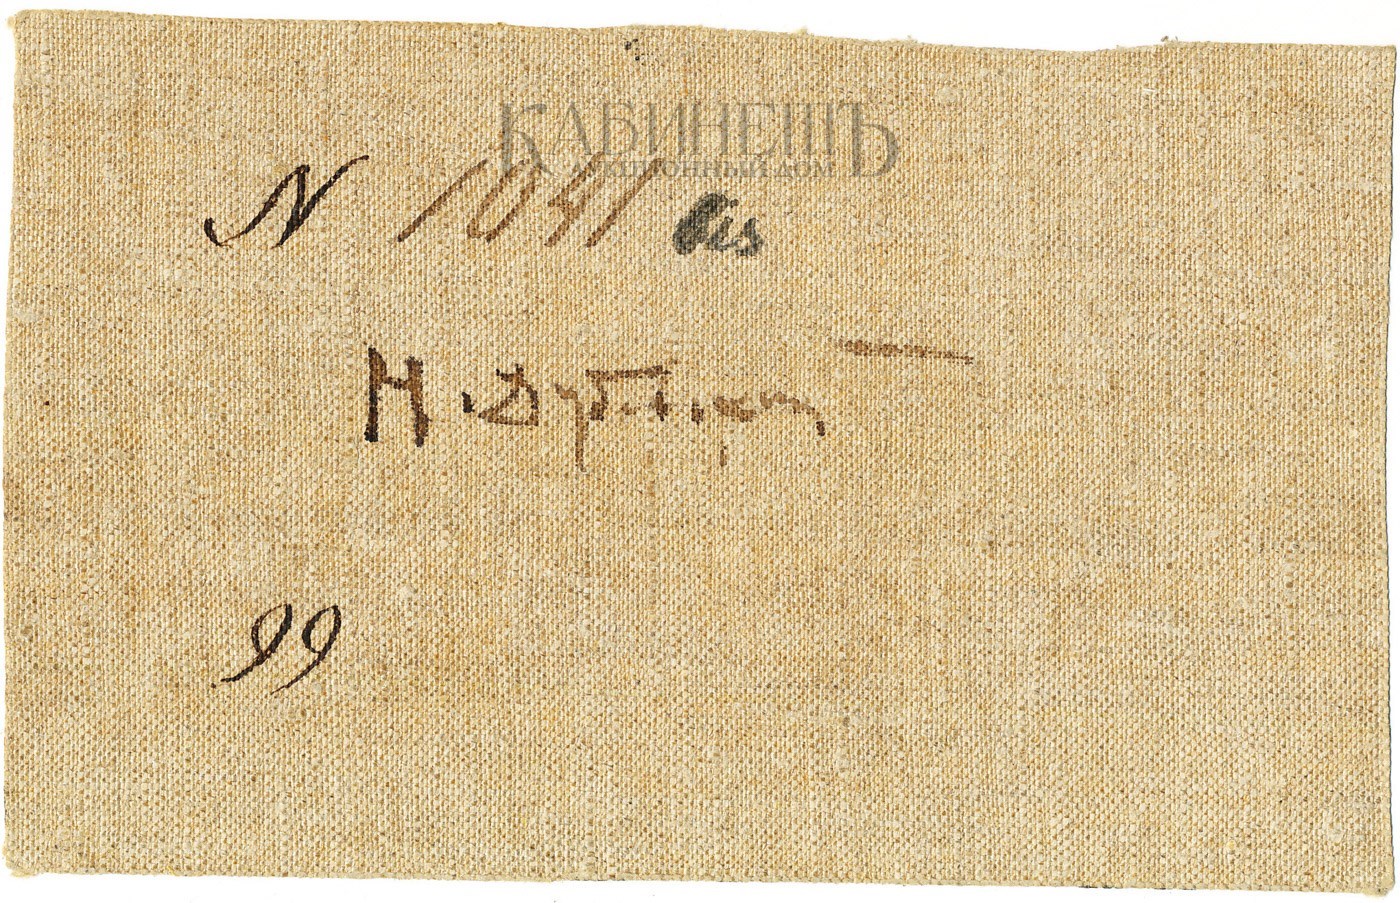 КАБИНЕТЪ
АУКЦИОННЫЙ ДОМ
N 1041 bis
Н. Дубовской
99